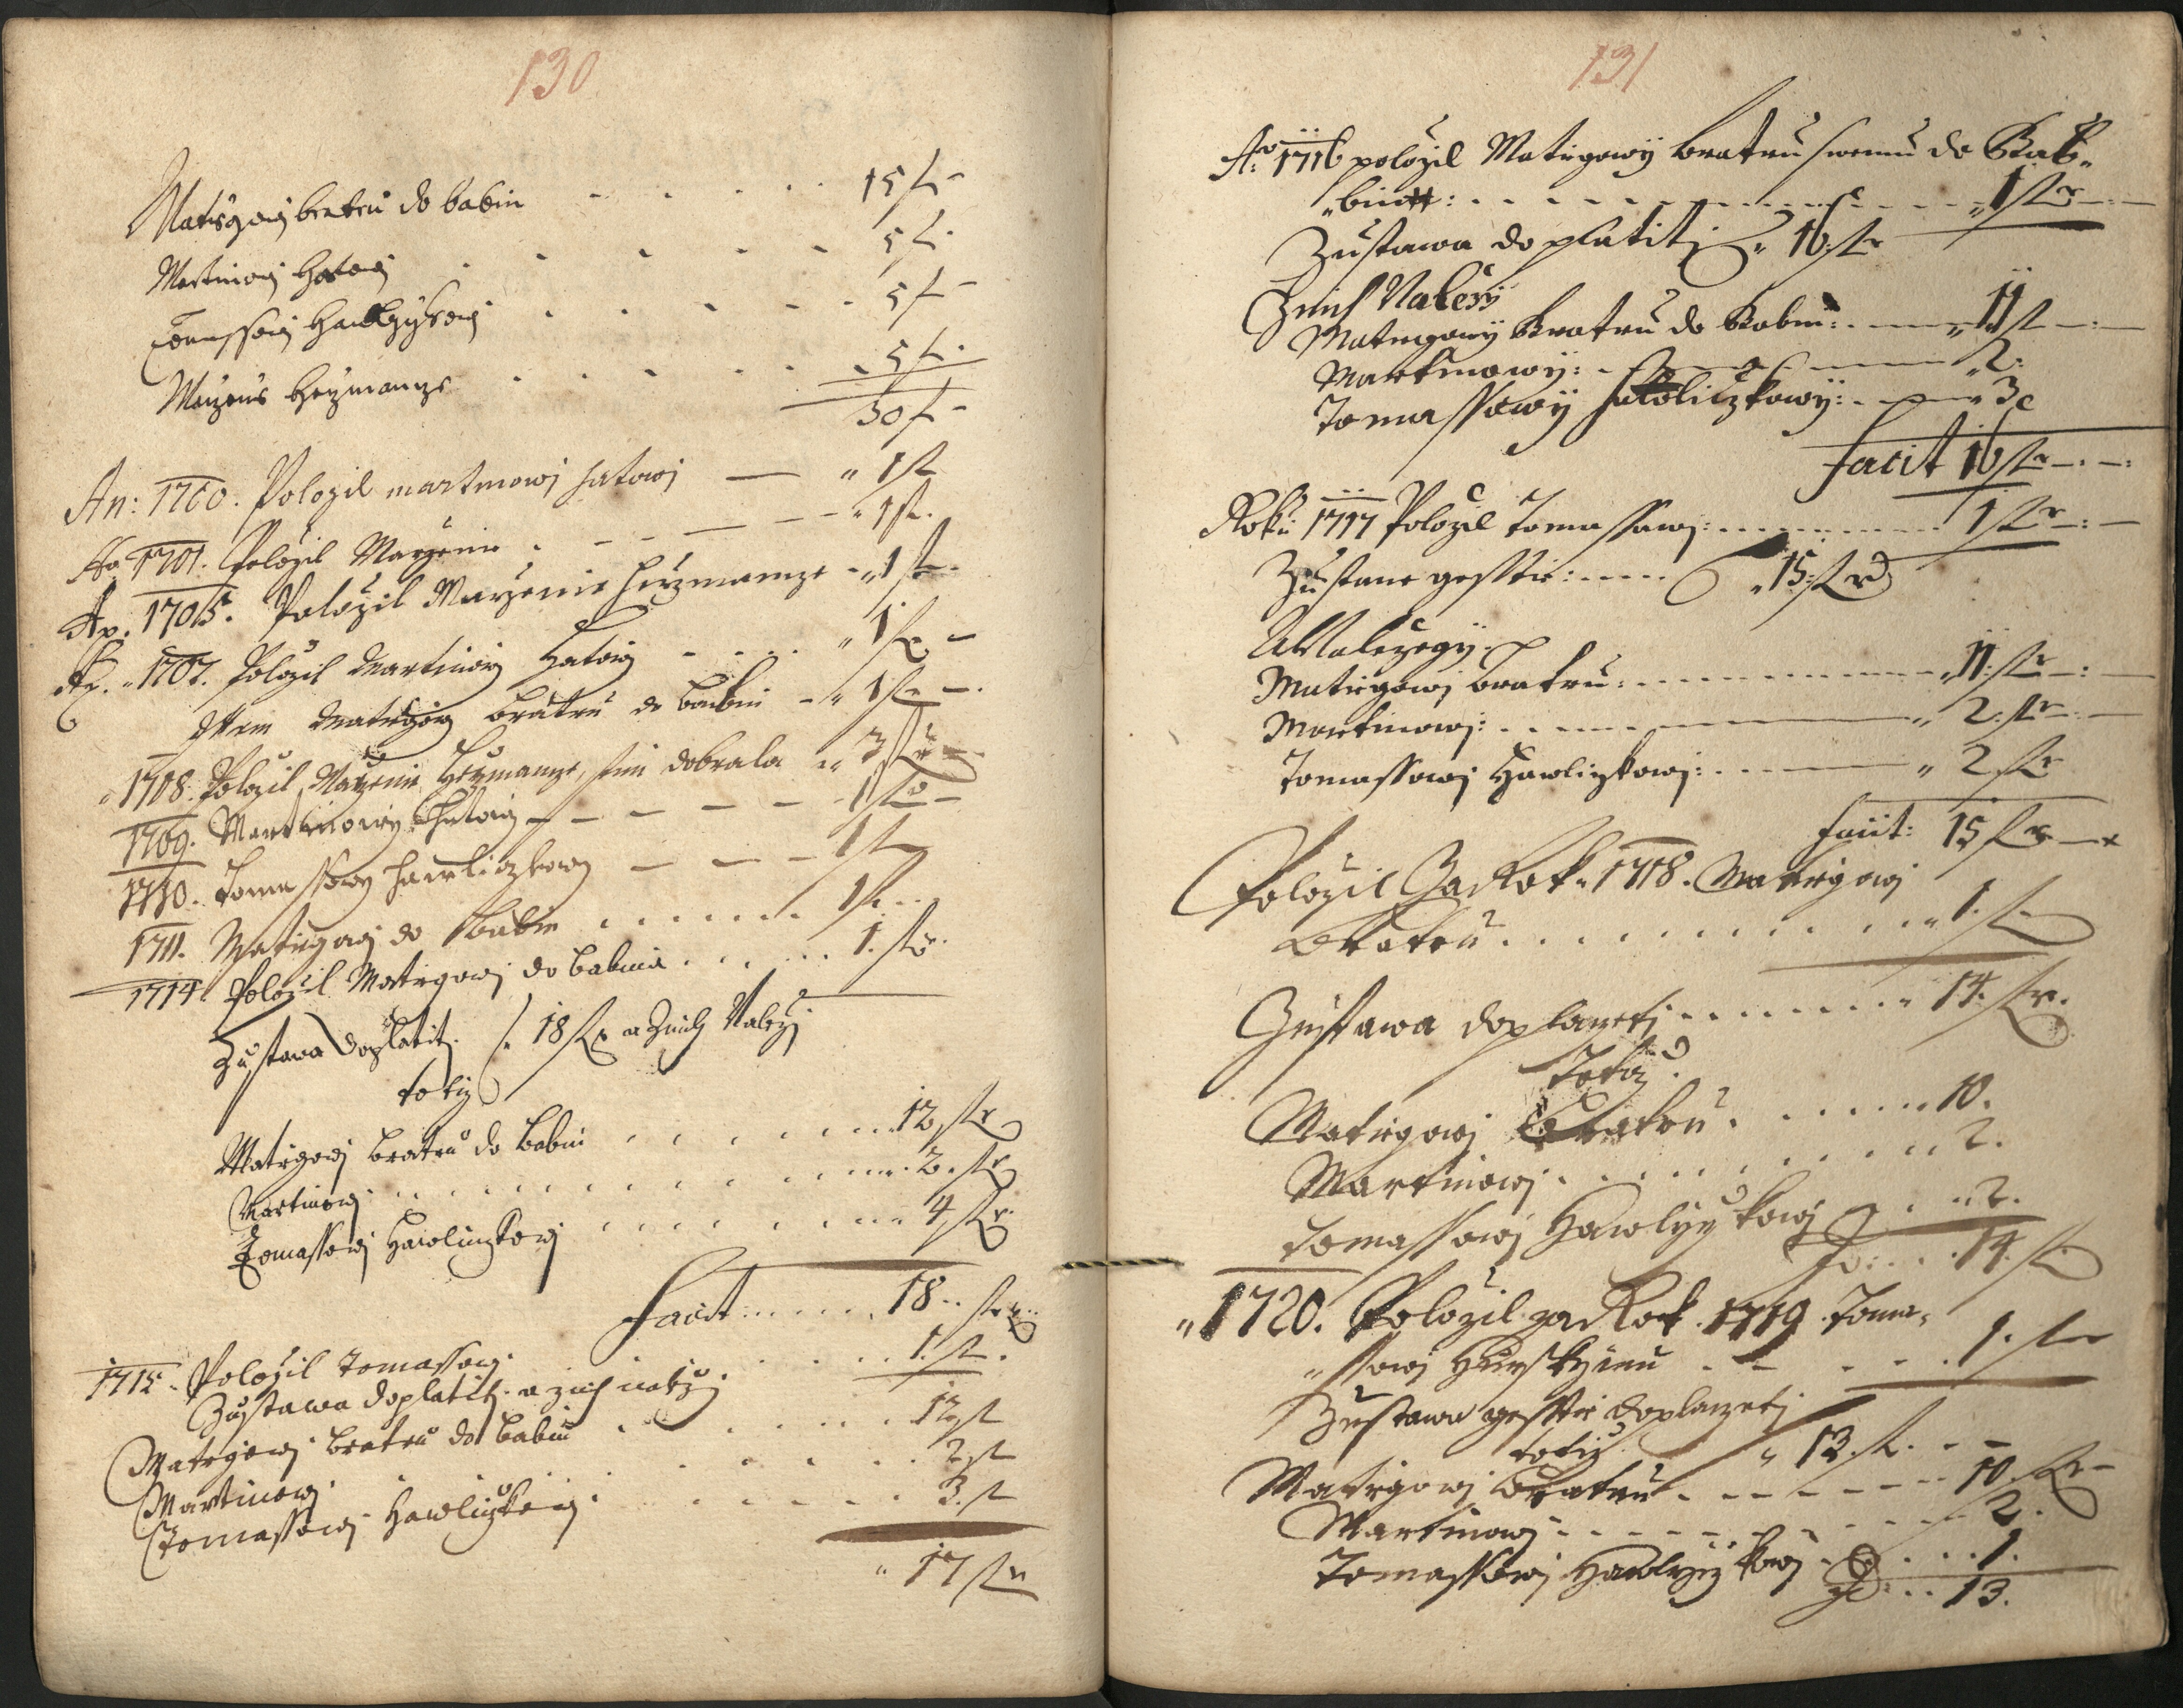 130
Matiegowj bratru do babin - - - - - 15 f -
Martinowj Hatowj - - - - - 5 f.
Tomassowj Hawlyczkowj . - - - - 5 f -
Mayeruss Heyzmanze - - - - - 5 f.
30 f -
An: 1700. Polozil martinowj hatowj — „ 1 fl
Ao 1701. Polozil Mayzenie . - - — — - „ 1 fl.
Ao. 1705. Polozil Mayzenie Heyzmanze - „ 1 fl.
Ao. „ 1707. Polozil Martinowj Hatowj - . . . . „ 1 fl. -
Item Matiegowj bratru do babin - „ 1 fl - .
„ 1708. Polozil Mayzenie Heyzmanze, sim dobrala „ 3 fl
1709. Martinowy Hatowj - - — — - 1 fl -
1710. Tomassowy hawliczkowj — — - 1 fl
1711. Matiegowj do babin . . . . . . . 1 fl. . .
1714 Polozil Matiegowj do babina . . . . . . 1. fl.
Zustawa doplatiti . 18 fl a Znich Nalezj
totiz
Matiegowj bratru do babin . . . . . . . 12 fl
Martinowj . . . . . . . . . . . 2. fl
Tomassowj Hawliczkowj . . . . . . „ 4 fl
Facit . . . . . 18 . . fl
1715. Polozil Tomassowj . . . . . . 1. fl.
Zustawa doplatiti. a znich nalezj
Matiegowj bratru do babin . . . . . . 12 fl
Martinowj . . . . . . 2 fl
Tomassowj Hawliczkowj . . . . . . 3. fl
„ 17 fl
131
Ao: 1716 polozil Matiegowÿ bratru swemu do Bab„
„bin: . . . . . . . . . . „ 1 fl — . —
Zustawa doplatitj „ 16. fl
Znich Nalezÿ
Matiegowÿ Bratru do Babin: . — — „ 11 fl — . —
Martinowÿ: . — — — „ 2:
Tomassowÿ hawliczkowÿ: . — — „ 3
facit 16 fl — . — :
Roku 1717 Polozil Tomassowj: . . . . . . . . 1 fl : —
Zustane gesstie: . . . . . „ 15: fl
Nalezegÿ.
Matiegowj bratru: . . . . . . . . . . „ 11: fl — : —
Martinowj: . . — — — — „ 2: fl — . —
Tomassowj Hawliczkowj: . — — — „ 2 fl
facit: 15 fl —
Polozil Za Rok „ 1718. Matiegowj
Bratru . . . . . . . . . . . „ 1. fl
Zustawa doplaczetj . . . . . . . . „ 14. fl.
Totiz.
Matiegowj Bratru . . . . . . „ 10.
Martinowj . . . . . . . . . . „ 2.
Tomassowj Hawlyczkowj . . „ 2.
. . . 14. fl
„ 1720. Polozil za Rok . 1719 . Toma„
„ssowj Hurskyimu . — . . . 1. fl
Zustawa gesstie doplaczetj
totiz „ 13. fl. - -
Matiegowj Bratru . - - - - - - 10. fl -
Martinowj - - - - - - - - 2.
Tomassowj Hawlyczkowj . . . . 1.
. . . 13.